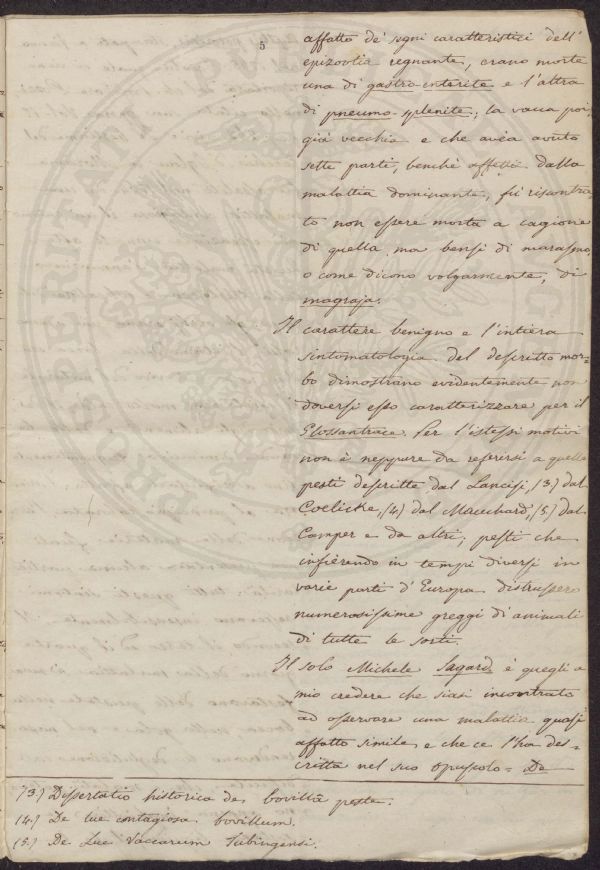 5
affatto de' segni caratteristici dell'
epizootia regnante, erano morte
una di gastro-enterite e l'altra
di pneumo-splenite; la vacca poi
già vecchia e che avea avuto
sette parti, benchè affetta dalla
malattia dominante, fù riscontra-
to non essere morta a cagione
di quella, ma bensì di marasmo,
o come dicono volgarmente, di
magraja.
Il carattere benigno e l'intiera
sintomatologia del descritto mor-
bo dimostrano evidentemente non
doversi esso caratterizzare per il
Glossantrace. Per l'istessi motivi
non è neppure da referirsi a quelle
pesti descritte dal Lancisi, (3) dal
Coelicke, (4) dal Mauchard, (5) dal
Camper e da altri; pesti che
infierendo in tempi diversi in
varie parti d'Europa distrussero
numerosissime greggi di animali
di tutte le sorti.
Il solo Michele Sagard è quegli a
mio credere che siasi incontrato
ad osservare una malattia quasi
affatto simile, e che ce l'ha des-
critta nel suo Opuscolo = De
(3) Dissertatio historica de bovilla peste.
(4) De lue contagiosa bovillum.
(5) De Lue Vaccarum Tubingensi.